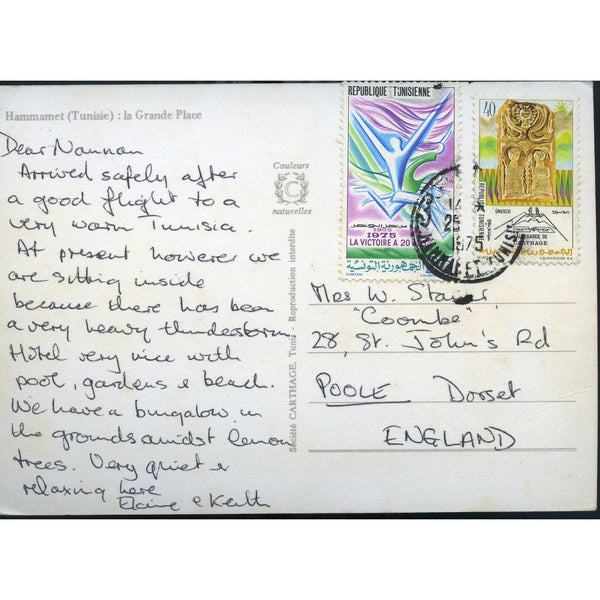 Hammamet (Tunisie) : la Grande Place
Dear Nannan
Arrived safely after
a good flight to a
very warm Tunisia.
At present however we
are sitting inside
because there has been
a very heavy thunderstorm
Hotel very nice with
pool, gardens & beach.
We have a bungalow in
the grounds amidst lemon
trees. Very quiet &
relaxing here
Elaine & Keith
Couleurs
C
naturelles
Société CARTHAGE, Tunis - Reproduction interdite
REPUBLIQUE TUNISIENNE
1975
LA VICTOIRE A 20
الجمهورية التونسية
40
REPUBLIQUE TUNISIENNE
UNESCO
CARTHAGE
14
25
1975
Mrs W.
"Coombe"
28, St. John's Rd
POOLE Dorset
ENGLAND